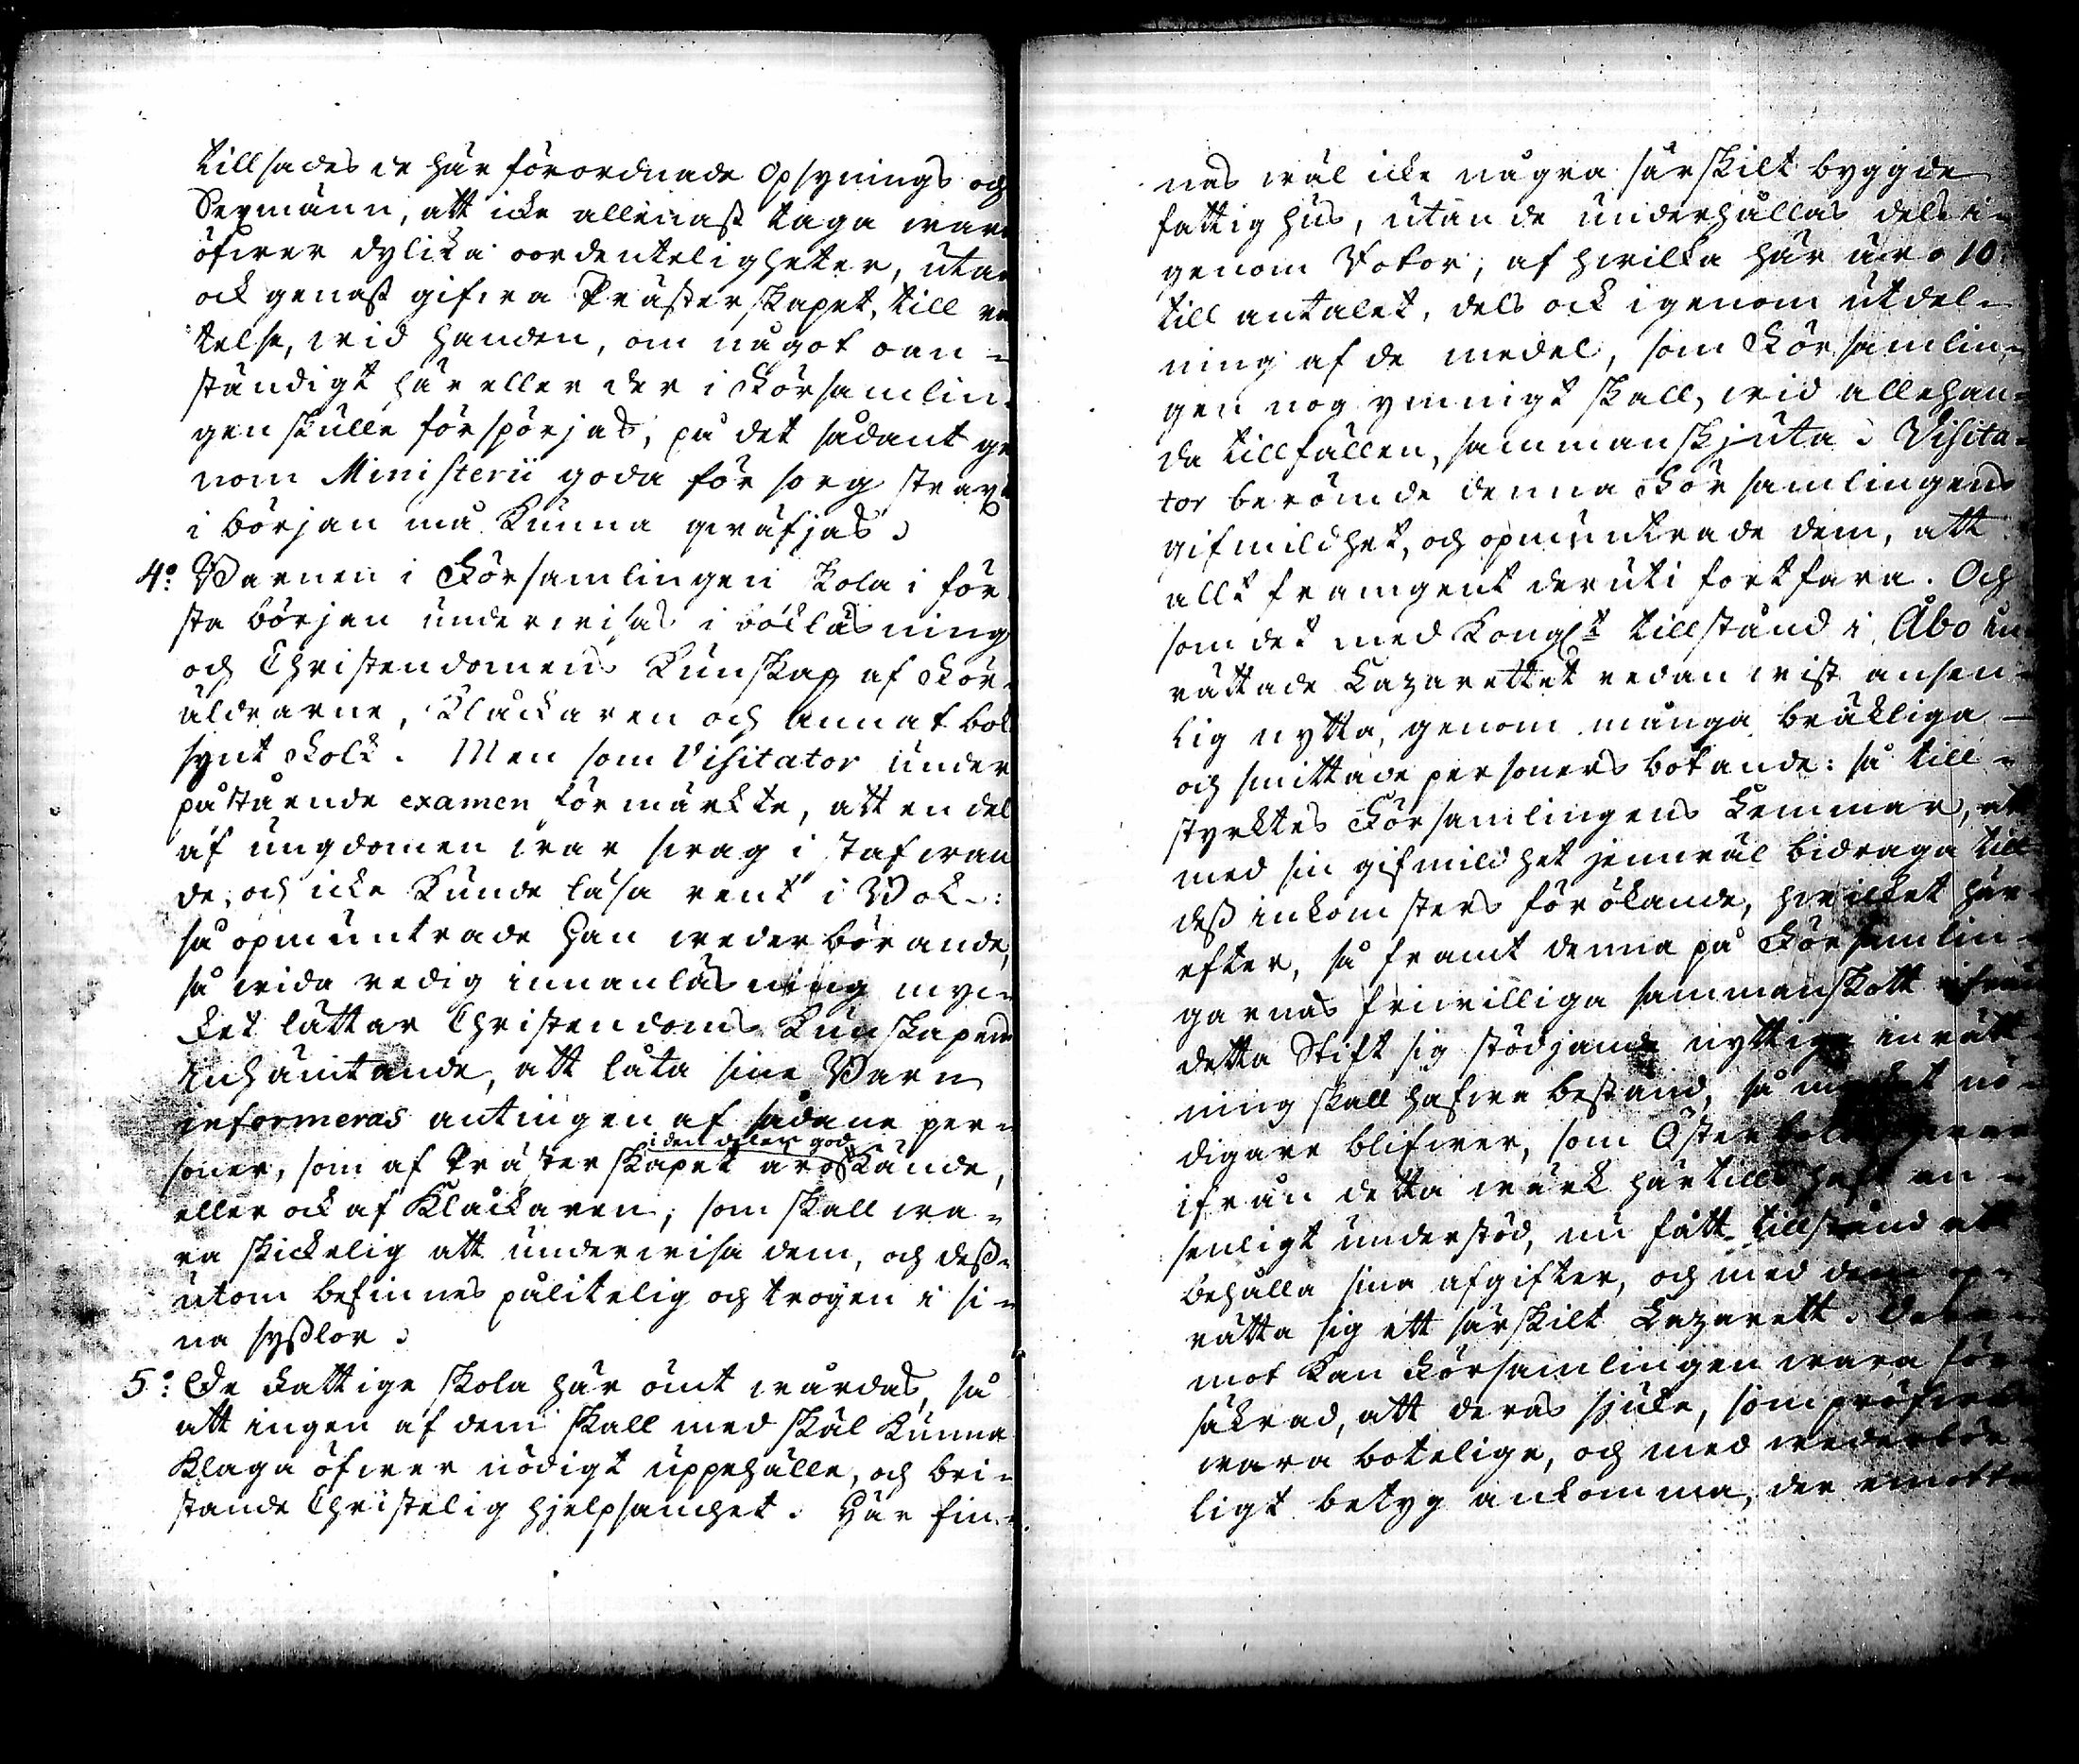 tillsades de här förordnade Opsynings och
Sexmänn, att icke allenast taga ware
öfwer dylika oordenteligheter, utan
ock genast gifwa Prästerskapet, till rä
telse, wid handen, om något oan-
ständigt här eller der i Församlin-
gen skulle förspörjas, på det sådant ge
nom Ministerii goda försorg strax
i början må kunna qwäfjas.
4:o Barnen i Församlingen skola i för
sta början underwisas i bokläsning
och Christendomens Kunskap af För-
äldrarne, Klåckaren och annat bok
synt Folk. Men som Visitator under
påstående examen förmärkte, att en del
af ungdomen war swag i stafwan
de, och icke kunde läsa rent i Bok:
så opmuntrade han wederbörande,
så wida redig innanläsning myc-
ket lättar Christendoms Kunskapens
inhämtande, att låta sine Barn
informeras antingen af sådane per-
i den delen god
soner, som af Prästerskapet äro kände,
eller ock af Klåckaren, som skall wa-
ra skickelig att underwisa dem, och dess-
utom befinnes pålitelig och trogen i si-
na sysslor.
5:o De Fattige skola här ömt wårdas, så
att ingen af dem skall med skäl kunna
klaga öfwer nödigt uppehälle, och bri-
stande Christelig hjelpsamhet. Här fin-
nas wäl icke några särskilt byggde
fattighus, utan de underhållas dels i-
genom Rotor, af hwilka här äro 10
till antalet, dels ock igenom utdel-
ning af de medel, som Församlin-
gen nog ymnigt skall, wid allehan-
da tillfällen, sammanskjuta. Visita-
tor berömde denna Församlingens
gifmildhet, och opmuntrade dem, att
allt framgent deruti fortfara. Och
som det med Kongl:t tillstånd i Åbo in
rättade Lazarettet redan wist ansen-
lig nytta, genom många bräkliga
och smittade personers botande: så till-
styrktes Församlingens Lemmar, att
med sin gifmildhet jemwäl bidraga till
dess inkomsters förökande, hwilket här-
efter, så framt denna på Församlin-
garnas friwilliga sammanskott ifrån
detta Stift sig stödjande nyttiga inrätt
ning skall hafwa bestånd, så mycket nö-
digare blifwer, som
ifrån detta wärk härtill haft an-
senligt understöd, nu fått tillstånd att
behålla sina afgifter, och med dem op-
rätta sig ett särskilt Lazarett. Der-
mot kan Församlingen wara för
säkrad, att deras sjuke, som pröfwas
wara botelige, och med wederbör
ligt betyg ankomma, der emotta